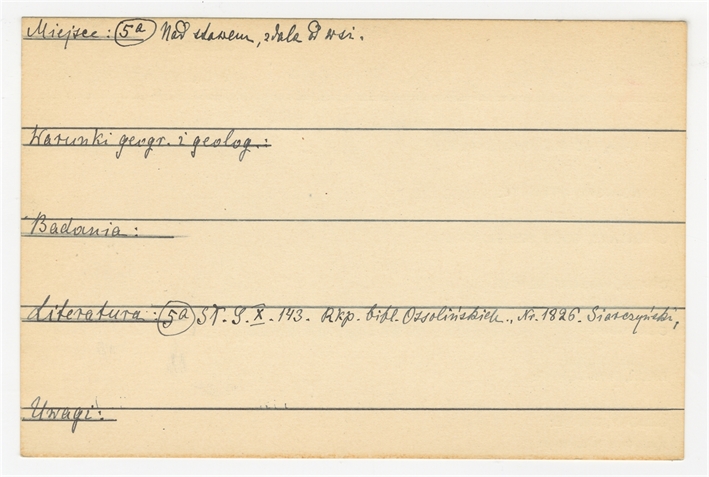 Miejsce: 5a Nad stawem, zdala od wsi.
Warunki geogr. i geolog.:
Badania:
Literatura: 5a ST. G. X. 143. Rkp. bibl. Ossolińskich., Nr. 1826. Siarczyński,
Uwagi: